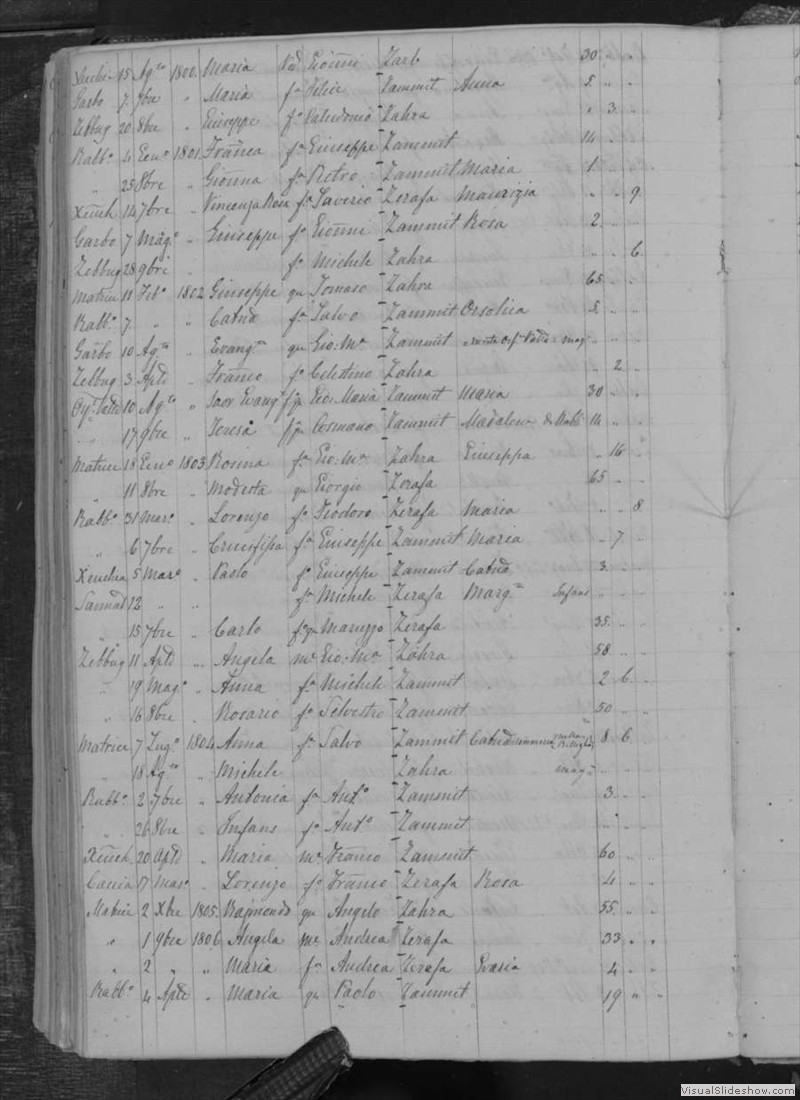 Xeuchia 15 Ag.to 1800 Maria Vid Gionni Zarb 30 " "
Garbo 7 7bre " Maria f.a Felice Zammit Anna 5 " "
Zebbug 20 8bre " Giuseppe f.o Zahra " 3 "
Rabb.o 4 Gen.o 1801 Franca f.a Giuseppe Zammit 14
" 25 8bre " Gionna f.a Pietro Zammit Maria 1
Xeuch 14 7bre " Vincenza Rosa f.a Saverio Zerafa Maurizia " " 9
Garbo 7 Mag.o " Giuseppe f.o Gionni Zammit Rosa 2 " "
Zebbug 28 9bre " f.o Michele Zahra " " 6
Matrice 11 Feb.o 1802 Giuseppe qu Tomaso Zahra 65 " "
Rabb.o 7 " " Catnd f.a Salvo Zammit Orsolica 5 " "
Garbo 10 Ag.to " Evang.ta qu Gio: M.a Zammit
Zebbug 3 Aple " Franco f.o Celestino Zahra " 2 "
10 Ag.to " Suor Evang Gio: Maria Zammit Maria 30 " "
" 17 9bre " Teresa Cosmano Zammit Madalena 14 " "
Matrice 18 Gen.o 1803 Rosina f.a Gio: M.a Zahra Giuseppa " 16 "
" 11 8bre " Modesta qu Giorgio Zerafa 65 " "
Rabb.o 31 Mar.o " Lorenzo f.o Teodoro Zerafa Maria " " 8
" 6 7bre " Crucifissa f.a Giuseppe Zammit Maria " 7 "
Xeuchia 5 Mar.o " Paolo f.o Giuseppe Zammit Catnd 3 " "
Sannat 12 " " f.o Michele Zerafa Marg.ta Infans " "
" 15 7bre " Carlo Maruzzo Zerafa 35 " "
Zebbug 11 Aple " Angela m.e Gio: M.a Zahra 58 " "
" 19 Mag.o " Anna f.a Michele Zammit 2 6 "
" 16 8bre " Rosario f.o Silvestro Zammit 50 " "
Matrice 7 Lug.o 1804 Anna f.a Salvo Zammit 8 6 "
" 18 Ag.to " Michele Zahra
Rabb.o 2 7bre " Antonia f.a Ant.o Zammit 3 " "
" 26 8bre " Infans f.o Ant.o Zammit " "
Xeuch 20 Aple " Maria m.e Franco Zammit 60 " "
Caccia 17 Mar.o " Lorenzo f.o Franco Zerafa Rosa 4 " "
Matrice 2 Xbre 1805 Raimondo qu Angelo Zahra 55 " "
" 1 9bre 1806 Angela m.e Andrea Zerafa 33 " "
" 2 " " Maria f.a Andrea Zerafa Grazia 4 " "
Rabb.o 4 Aple " Maria qu Paolo Zammit 19 " "
VisualSlideshow.com